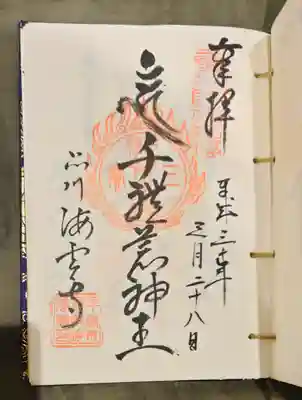 奉拝
平成三十年
三月二十八日
千躰荒神王
品川
海雲寺